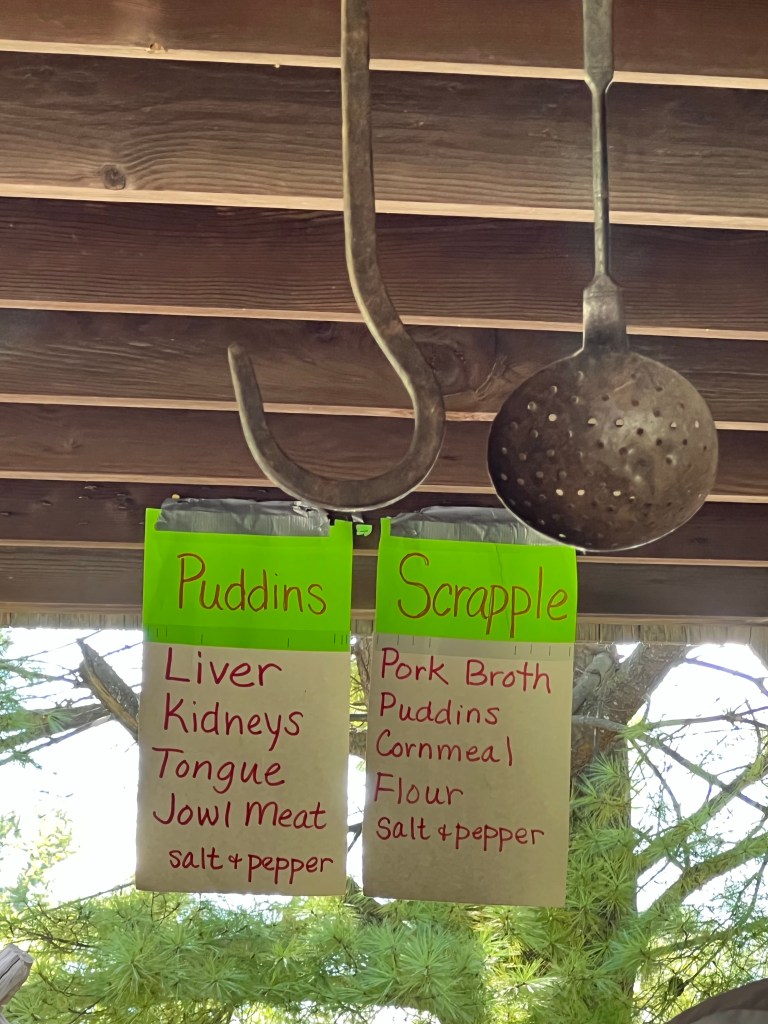 Puddins
Liver
Kidneys
Tongue
Jowl Meat
salt & pepper
Scrapple
Pork Broth
Puddins
Cornmeal
Flour
salt & pepper